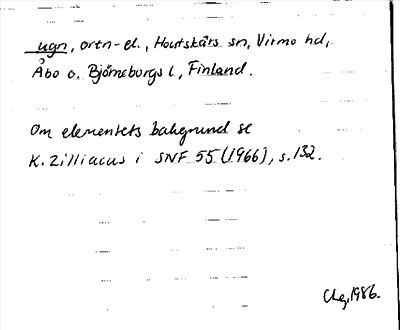 ugn, ortn-el., Houtskärs sn, Virmo hd,
Åbo o. Björneborgs l, Finland.
Om elementets bakgrund se
K. Zilliacus i SNF 55 (1966), s. 132.
1986.